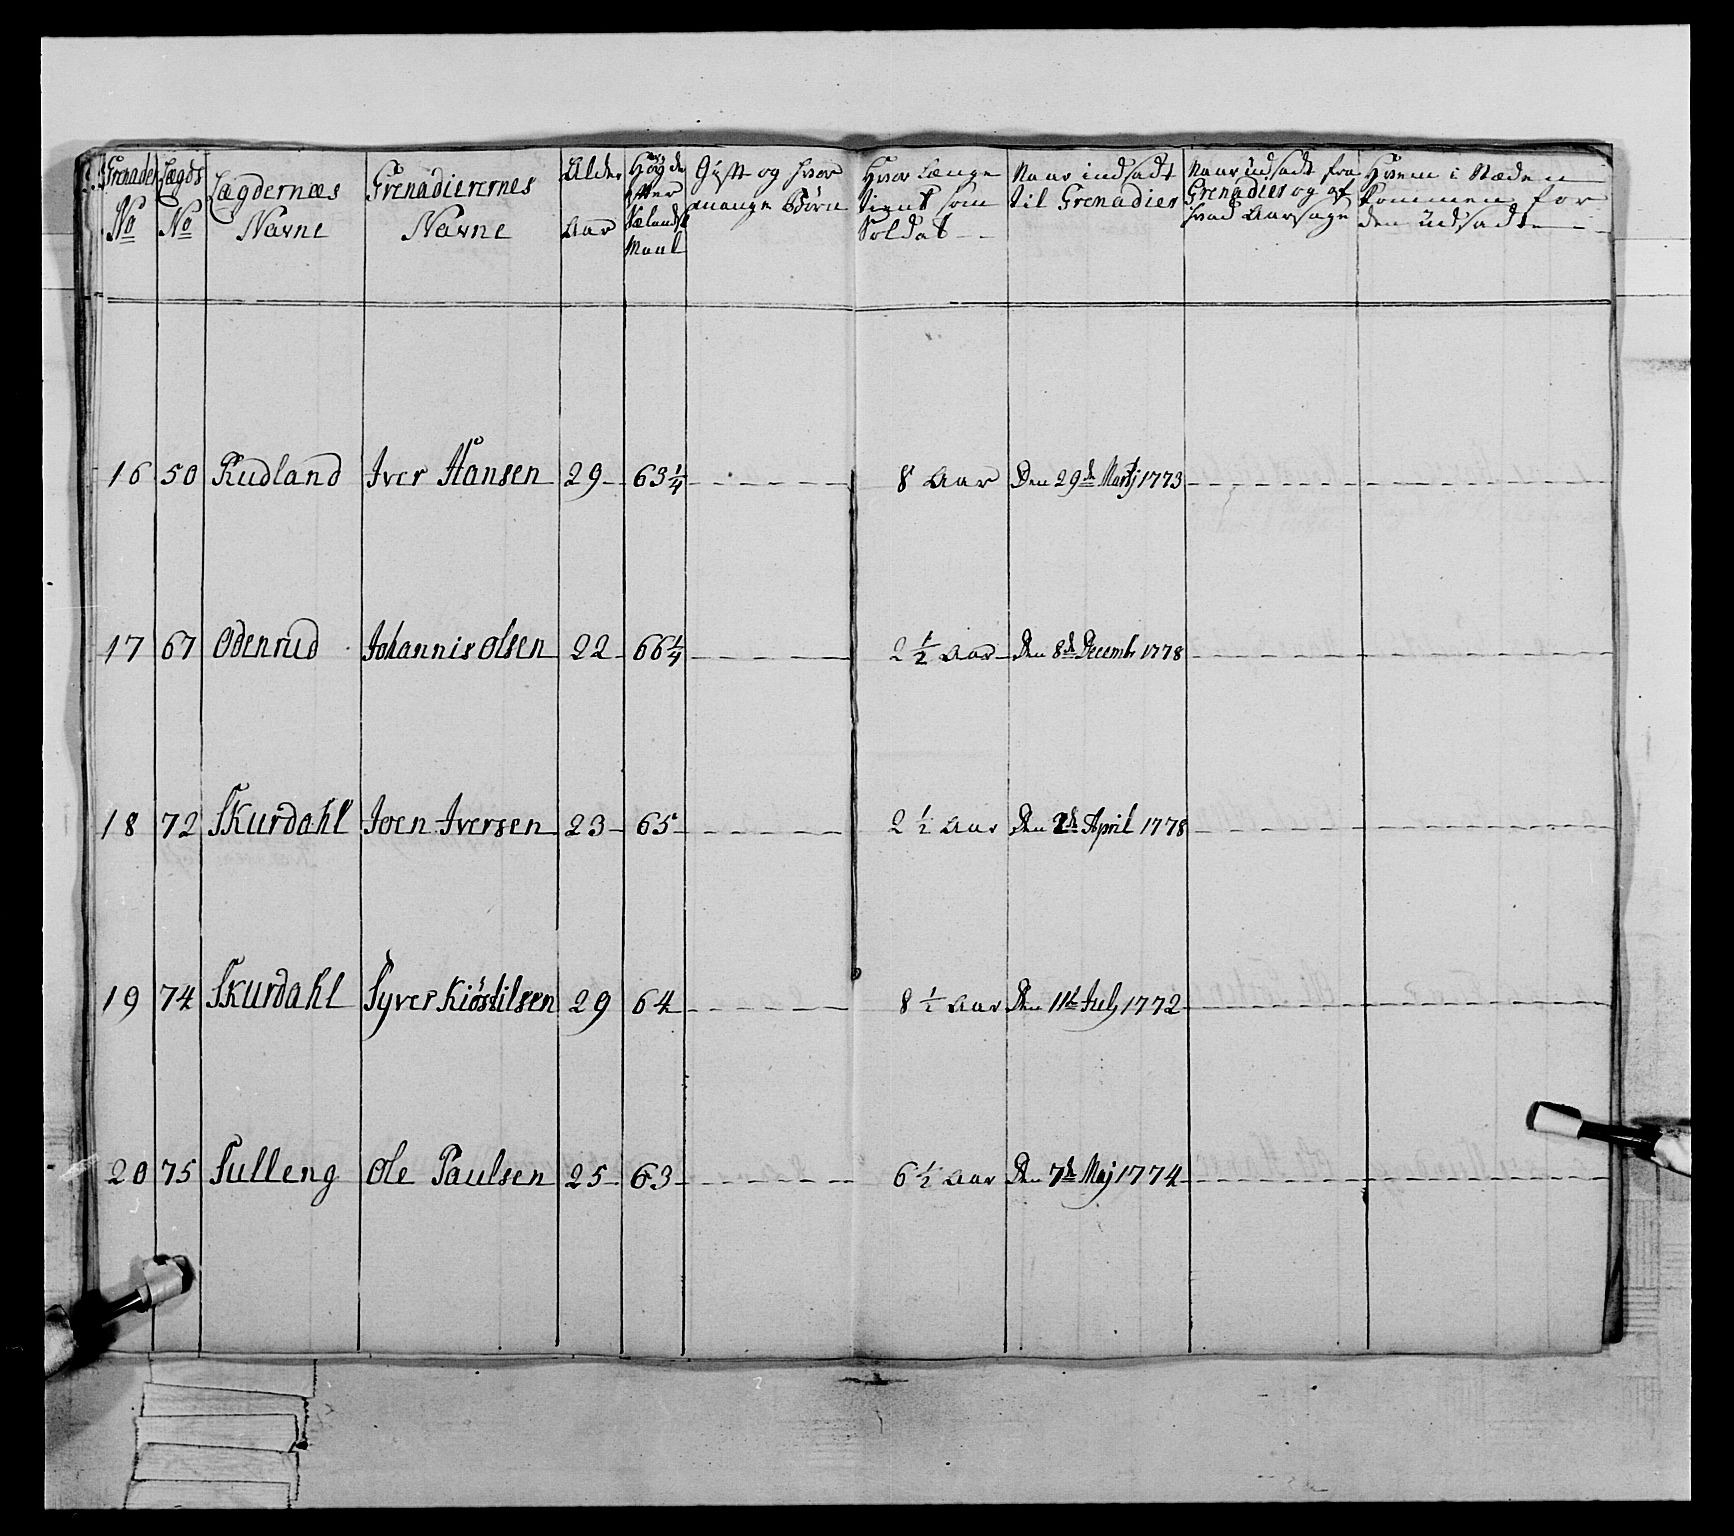 Grenader No | Lægds No | Lægdernæs Navne | Grenadierernes Navne | Alder Aar | Høgde efter Siælands Maal | Gift og hvor mange Børn | Hvor Længe tient som Soldat | Naar indsadt til Grenadier | Naar udsadt fra Grenadier og af hvad Aarsage | Hvem i Stæden kommen for den udsadte
16 | 50 | Rudland | Iver Hansen | 29 | 63 1/4 | 8 Aar | Den 29de Martj 1773
17 | 67 | Odenrud | Johannis Olsen | 22 | 66 1/4 | 2 1/2 Aar | Den 8de Decembr 1778
18 | 72 | Skurdahl | Joen Iversen | 23 | 65 | 2 1/2 Aar | Den 2de April 1778
19 | 74 | Skurdahl | Syver Kiöstilsen | 29 | 64 | 8 1/2 Aar | Den 11te July 1772
20 | 75 | Sulleng | Ole Paulsen | 25 | 63 | 6 1/2 Aar | Den 7de Maj 1774